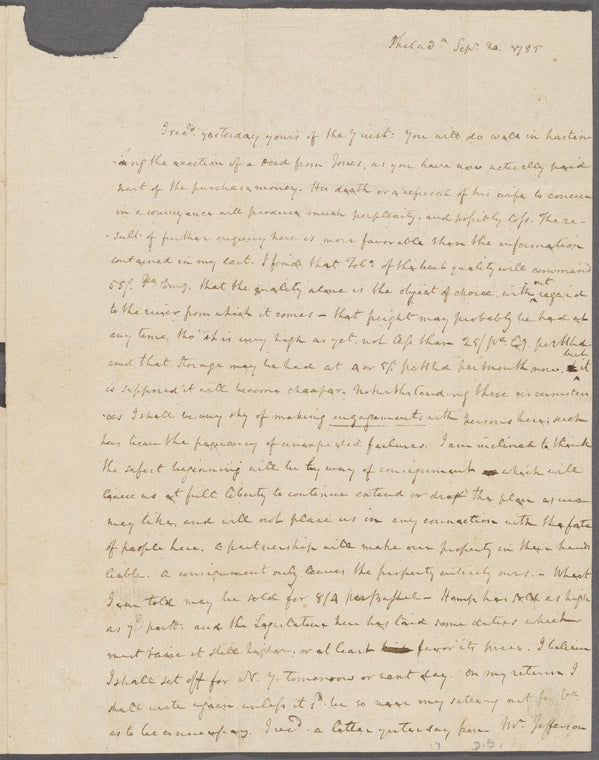 Philad.ª Sepr. 20. 1785
I recd. yesterday yours of the 9 inst: You will do well in hasten-
-ing the execution of a Deed from Jones, as you have now actually paid
part of the purchase money. His death or a refusal of his wife to concur
in a conveyance will produce much perplexity. and possibly loss. The re-
-sult of further enquiry here is more favorable than the information
contained in my last. I find that Tobo. of the best quality will command
55/. Pa. Curry. that the quality alone is the object of choice, with out regard
to the river from which it comes – that freight may probably be had at
any time, tho' it is very high as yet, not less than 25/ pa Cy. per Hhd
and that Storage may be had at 4 or 5/. per Hhd per Month now. but it
is supposed it will become cheaper. Notwithstanding these circumstan-
-ces I shall be very shy of making engagements with persons here; such
has been the frequency of unexpected failures. I am inclined to think
the safest beginning will be by way of consignment which will
leave us at full liberty to continue extend or drop the plan as we
may like, and will not place us in any connection with the fate
of people here. A partnership will make our property in their hands
liable. A consignment only leaves the property entirely ours. – Wheat
I am told may be sold for 8/4 per bushel – Hemp has sold as high
as 7d. per lb. and the Legislature here has laid some duties which
must raise it still higher, or at least favor its price. I believe
I shall set off for N. Y. tomorrow or next day. On my return I
shall write again unless it sd. be so near my setting out for Va
as to be unnecessary. I recd. a letter yesterday from Mr. Jefferson